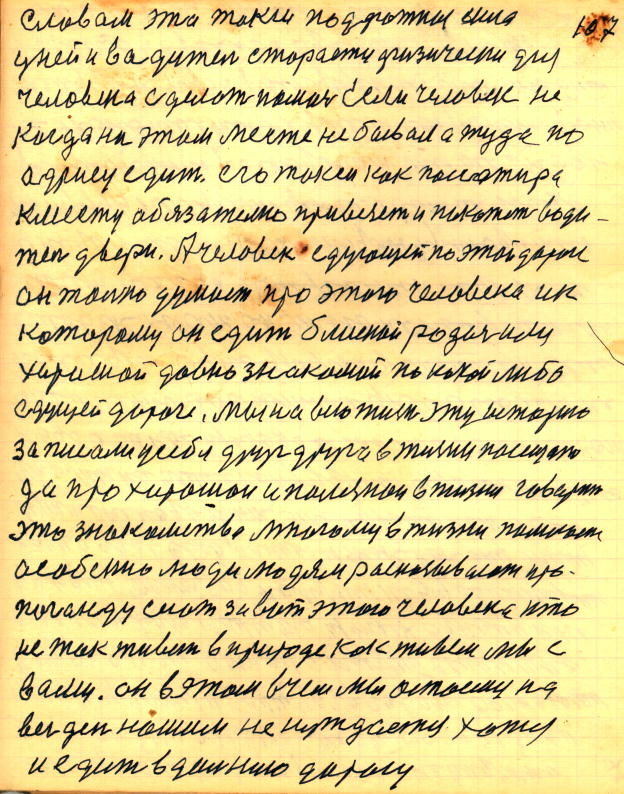 107
словам эта такси поддоржния сила
уней и вадител старасти физически для
человека сделат помоч Если человек не
когда на этом месте не бывал а туда по
адрису едит. его такси как пасатира
к месту обязателно привезет и покажет води-
тел двери. А человек едующей по этой дороги
он толко думает про этого человека и к
которому он едит близкой родич или
хорошой довно знакомой по какой либо
едущей дороги, мы на
записали у себя друг друга в жизни
да про хорошои и полезной в жизни говорит
это знакомства многому в жизни помогает
особенно люди людям расказывают про-
поганду этого человека кто
не так живет в природе как живем мы с
вами. он в этом в чем мы на
нашим не нуждается хотя
и едит в далнию дорогу